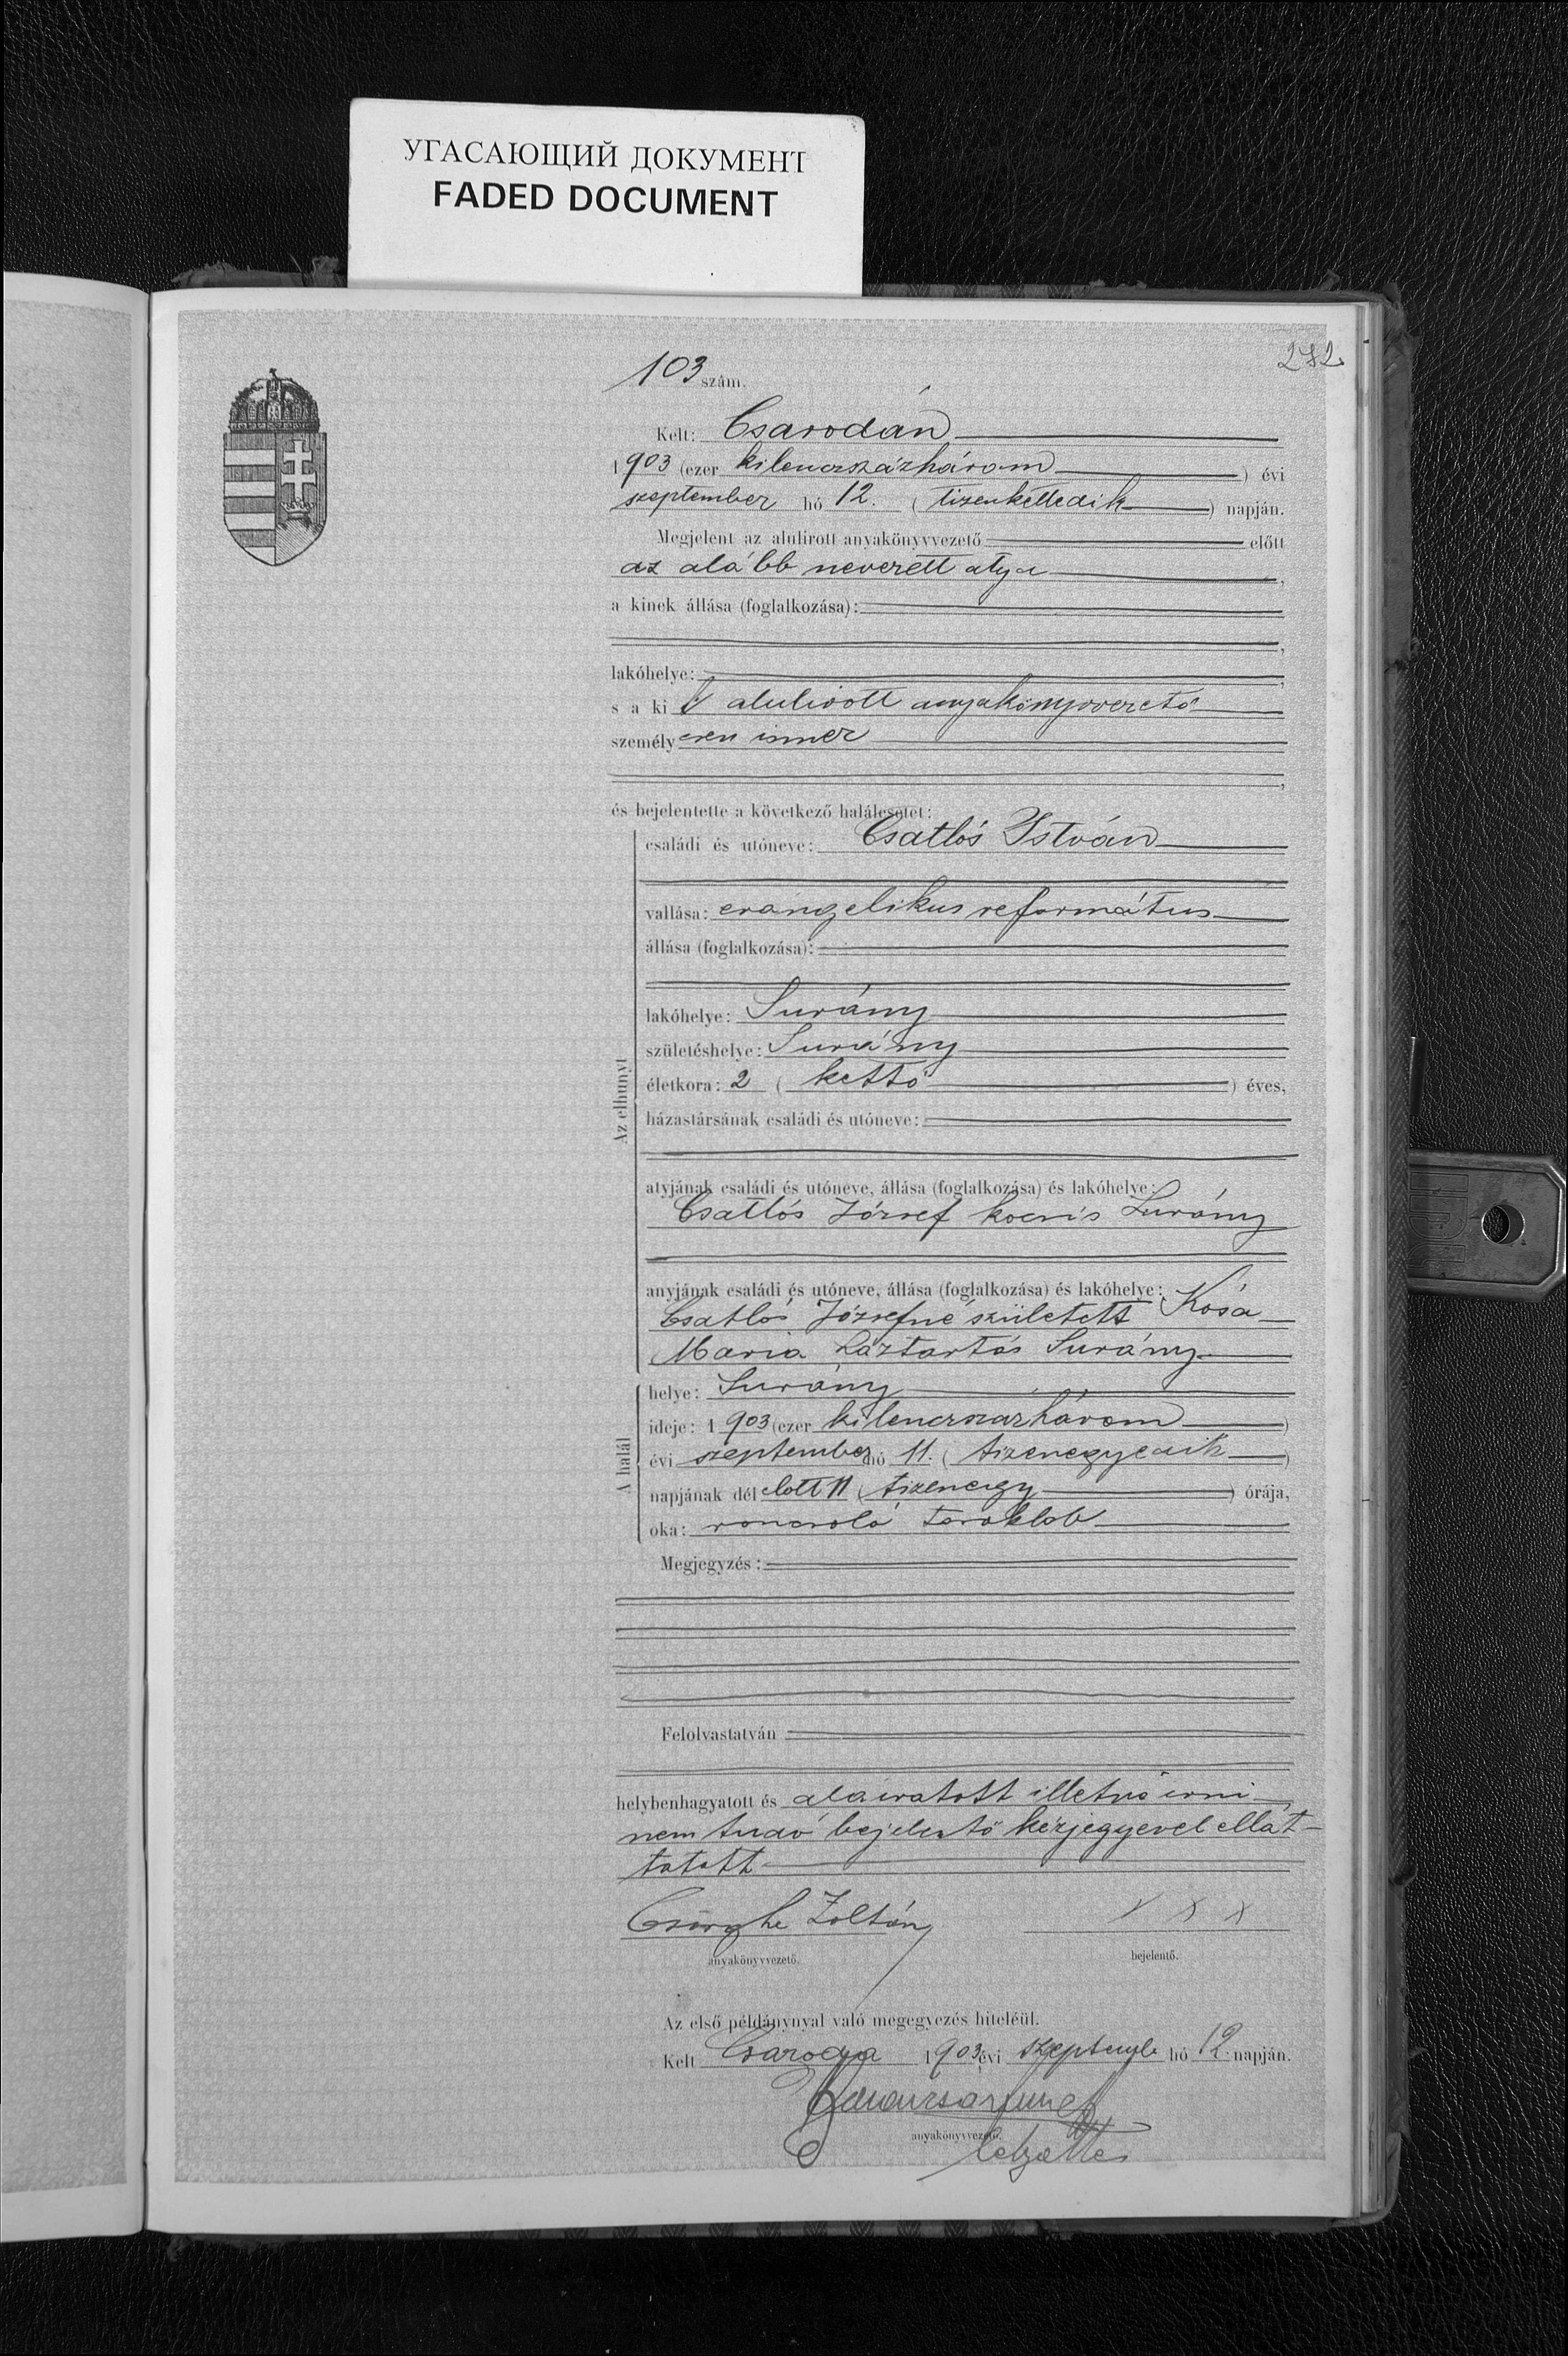 УГАСАЮЩИЙ ДОКУМЕНТ
FADED DOCUMENT
282
103 szám.
Kelt: Csarodán
1903 (ezer kilenczszázhárom) évi
szeptember hó 12. (tizenkettedik) napján.
Megjelent az alulirott anyakönyvvezető előtt
az alább nevezett atya,
a kinek állása (foglalkozása):
lakóhelye:
s a kit alulirott anyakönyvvezető
személyesen ismer
és bejelentette a következő halálesetet:
Az elhunyt
családi és utóneve: Csatlós István
vallása: evangelikus református
állása (foglalkozása):
lakóhelye: Surány
születéshelye: Surány
életkora: 2 (kettő) éves,
házastársának családi és utóneve:
atyjának családi és utóneve, állása (foglalkozása) és lakóhelye:
Csatlós József kocsis Surány
anyjának családi és utóneve, állása (foglalkozása) és lakóhelye:
Csatlós Józsefné született Kósa
Maria háztartás Surány
A halál
helye: Surány
ideje: 1903 (ezer kilenczszázhárom)
évi szeptember hó 11. (tizenegyedik)
napjának dél előtt 11 (tizenegy) órája,
oka: roncsoló toroklob
Megjegyzés:
Felolvastatván
helybenhagyatott és aláiratott illetve irni
nem tudó bejelentő kézjegyével ellát-
tatott
Zoltán x x x
anyakönyvvezető. bejelentő.
Az első példánynyal való megegyezés hiteléül.
Kelt Csaroda 1903 évi septemb hó 12. napján.
anyakönyvvezető.